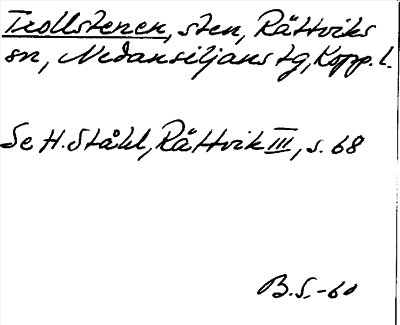 Trollstenen, sten, Rättviks
sn, Nedansiljans tg, Kopp. l.
Se H. Ståhl, Rättvik III, s. 68
B.S.-60